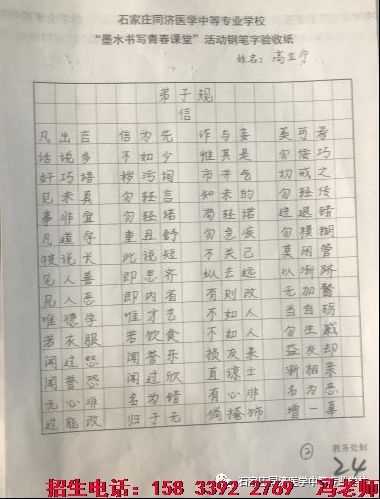 石家庄同济医学中等专业学校
“墨水书写青春课堂”活动钢笔字验收纸
姓名：高立宁
弟子规
信
凡出言 信为先 诈与妄 奚可焉
话说多 不如少 惟其是 勿佞巧
奸巧语 秽污词 市井气 切戒之
见未真 勿轻言 知未的 勿轻传
事非宜 勿轻诺 苟轻诺 进退错
凡道字 重且舒 勿急疾 勿模糊
彼说长 此说短 不关己 莫闲管
见人善 即思齐 纵去远 以渐跻
见人恶 即内省 有则改 无加警
唯德学 唯才艺 不如人 当自砺
若衣服 若饮食 不如人 勿生戚
闻过怒 闻誉乐 损友来 益友却
闻誉恐 闻过欣 直谅士 渐相亲
无心非 名为错 有心非 名为恶
过能改 归于无 倘掩饰 增一辜
②
教务处制
24
石家庄同济医学中等专业学校
招生电话：158 3392 2769 冯老师